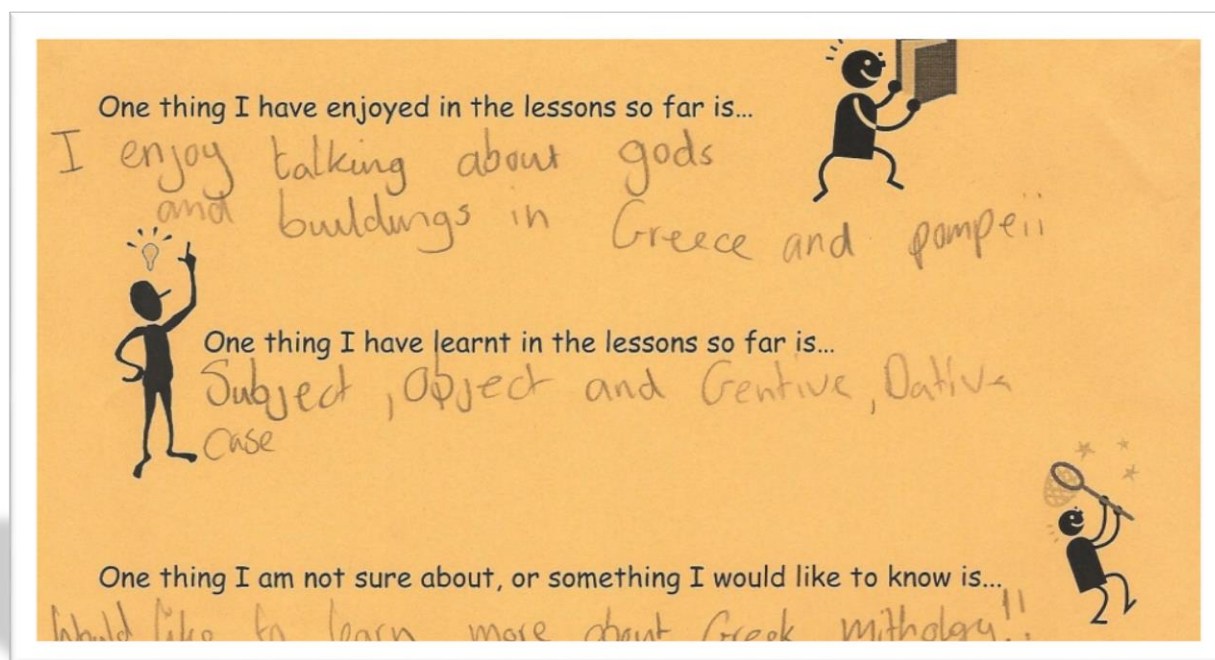 One thing I have enjoyed in the lessons so far is...
I enjoy talking about gods
and buildings in Greece and pompeii
One thing I have learnt in the lessons so far is...
Subject, Object and Gentive, Dative
case
One thing I am not sure about, or something I would like to know is...
Would like to learn more about Greek mithology!!